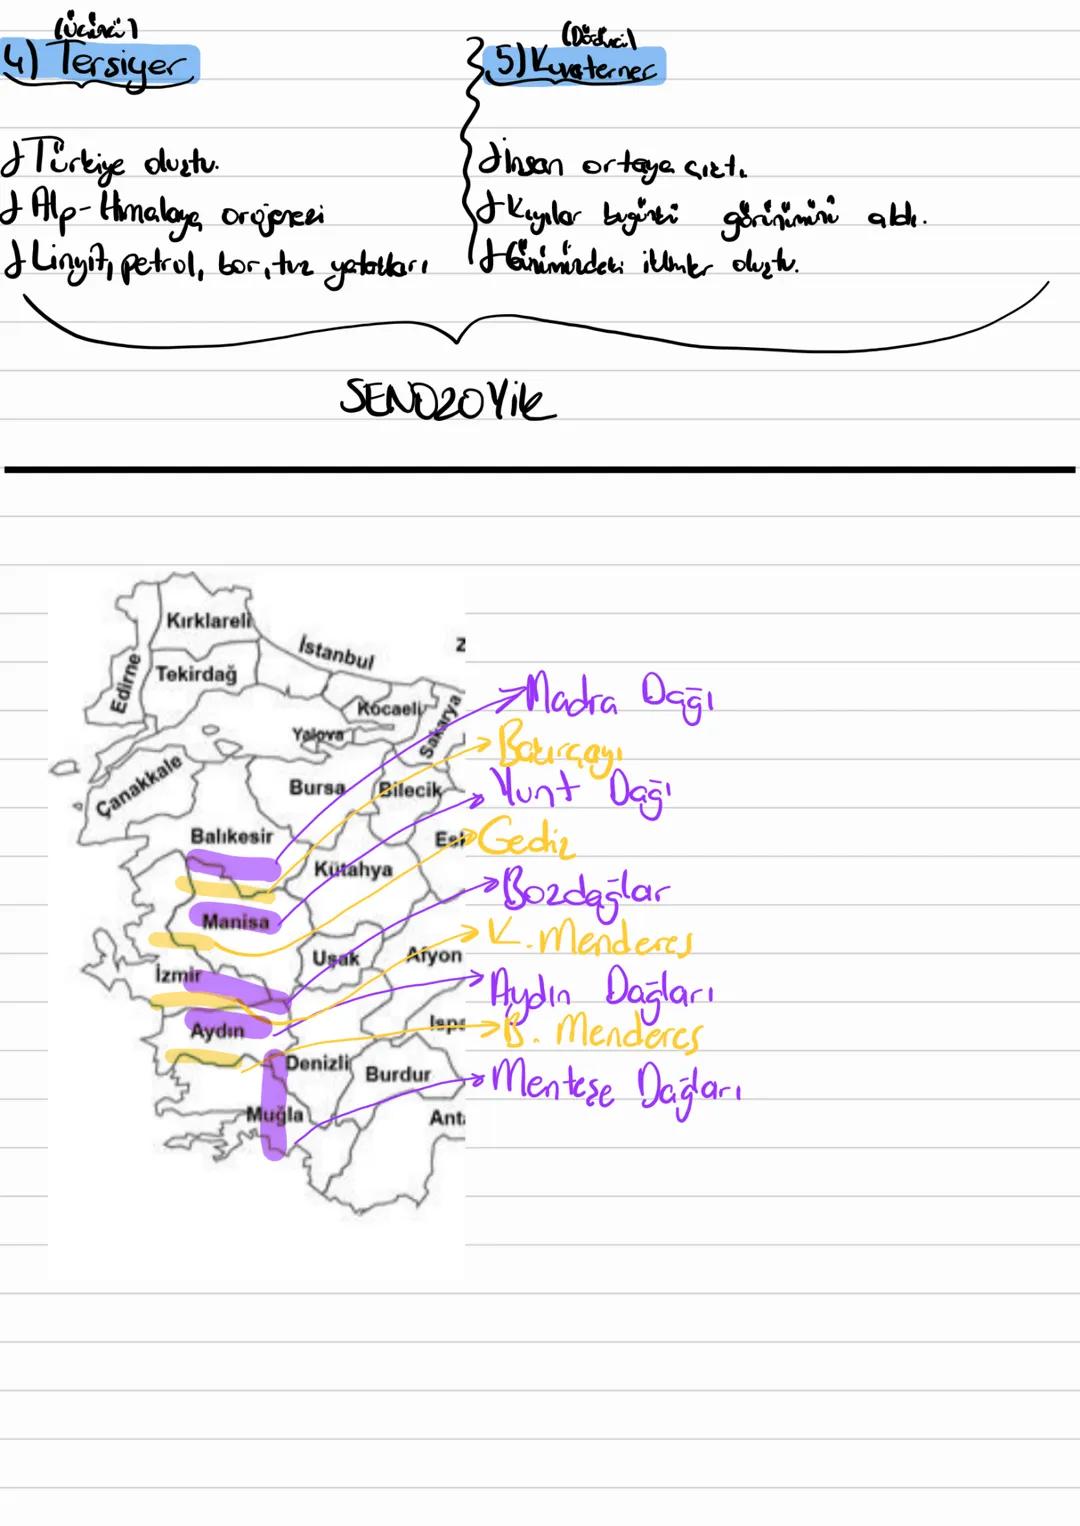 (Üçüncü)
4) Tersiyer
(Dördüncü)
5) Kuvaterner
Türkiye oluştu.
Alp-Himalaya orojenezi
Linyit, petrol, bor, tuz yatakları
İnsan ortaya çıktı.
Kıyılar bugünkü görünümünü aldı.
Günümüzdeki iklimler oluştu.
SENOZOYİK
Kırklareli
İstanbul
Z
Edirne
Tekirdağ
Kocaeli
Sakarya
Yalova
Çanakkale
Bursa
Bilecik
Balıkesir
Esk
Kütahya
Manisa
Uşak
Afyon
İzmir
Aydın
Ispa
Denizli
Burdur
Muğla
Anta
Madra Dağı
Bakırçayı
Yunt Dağı
Gediz
Bozdağlar
K. Menderes
Aydın Dağları
B. Menderes
Menteşe Dağları